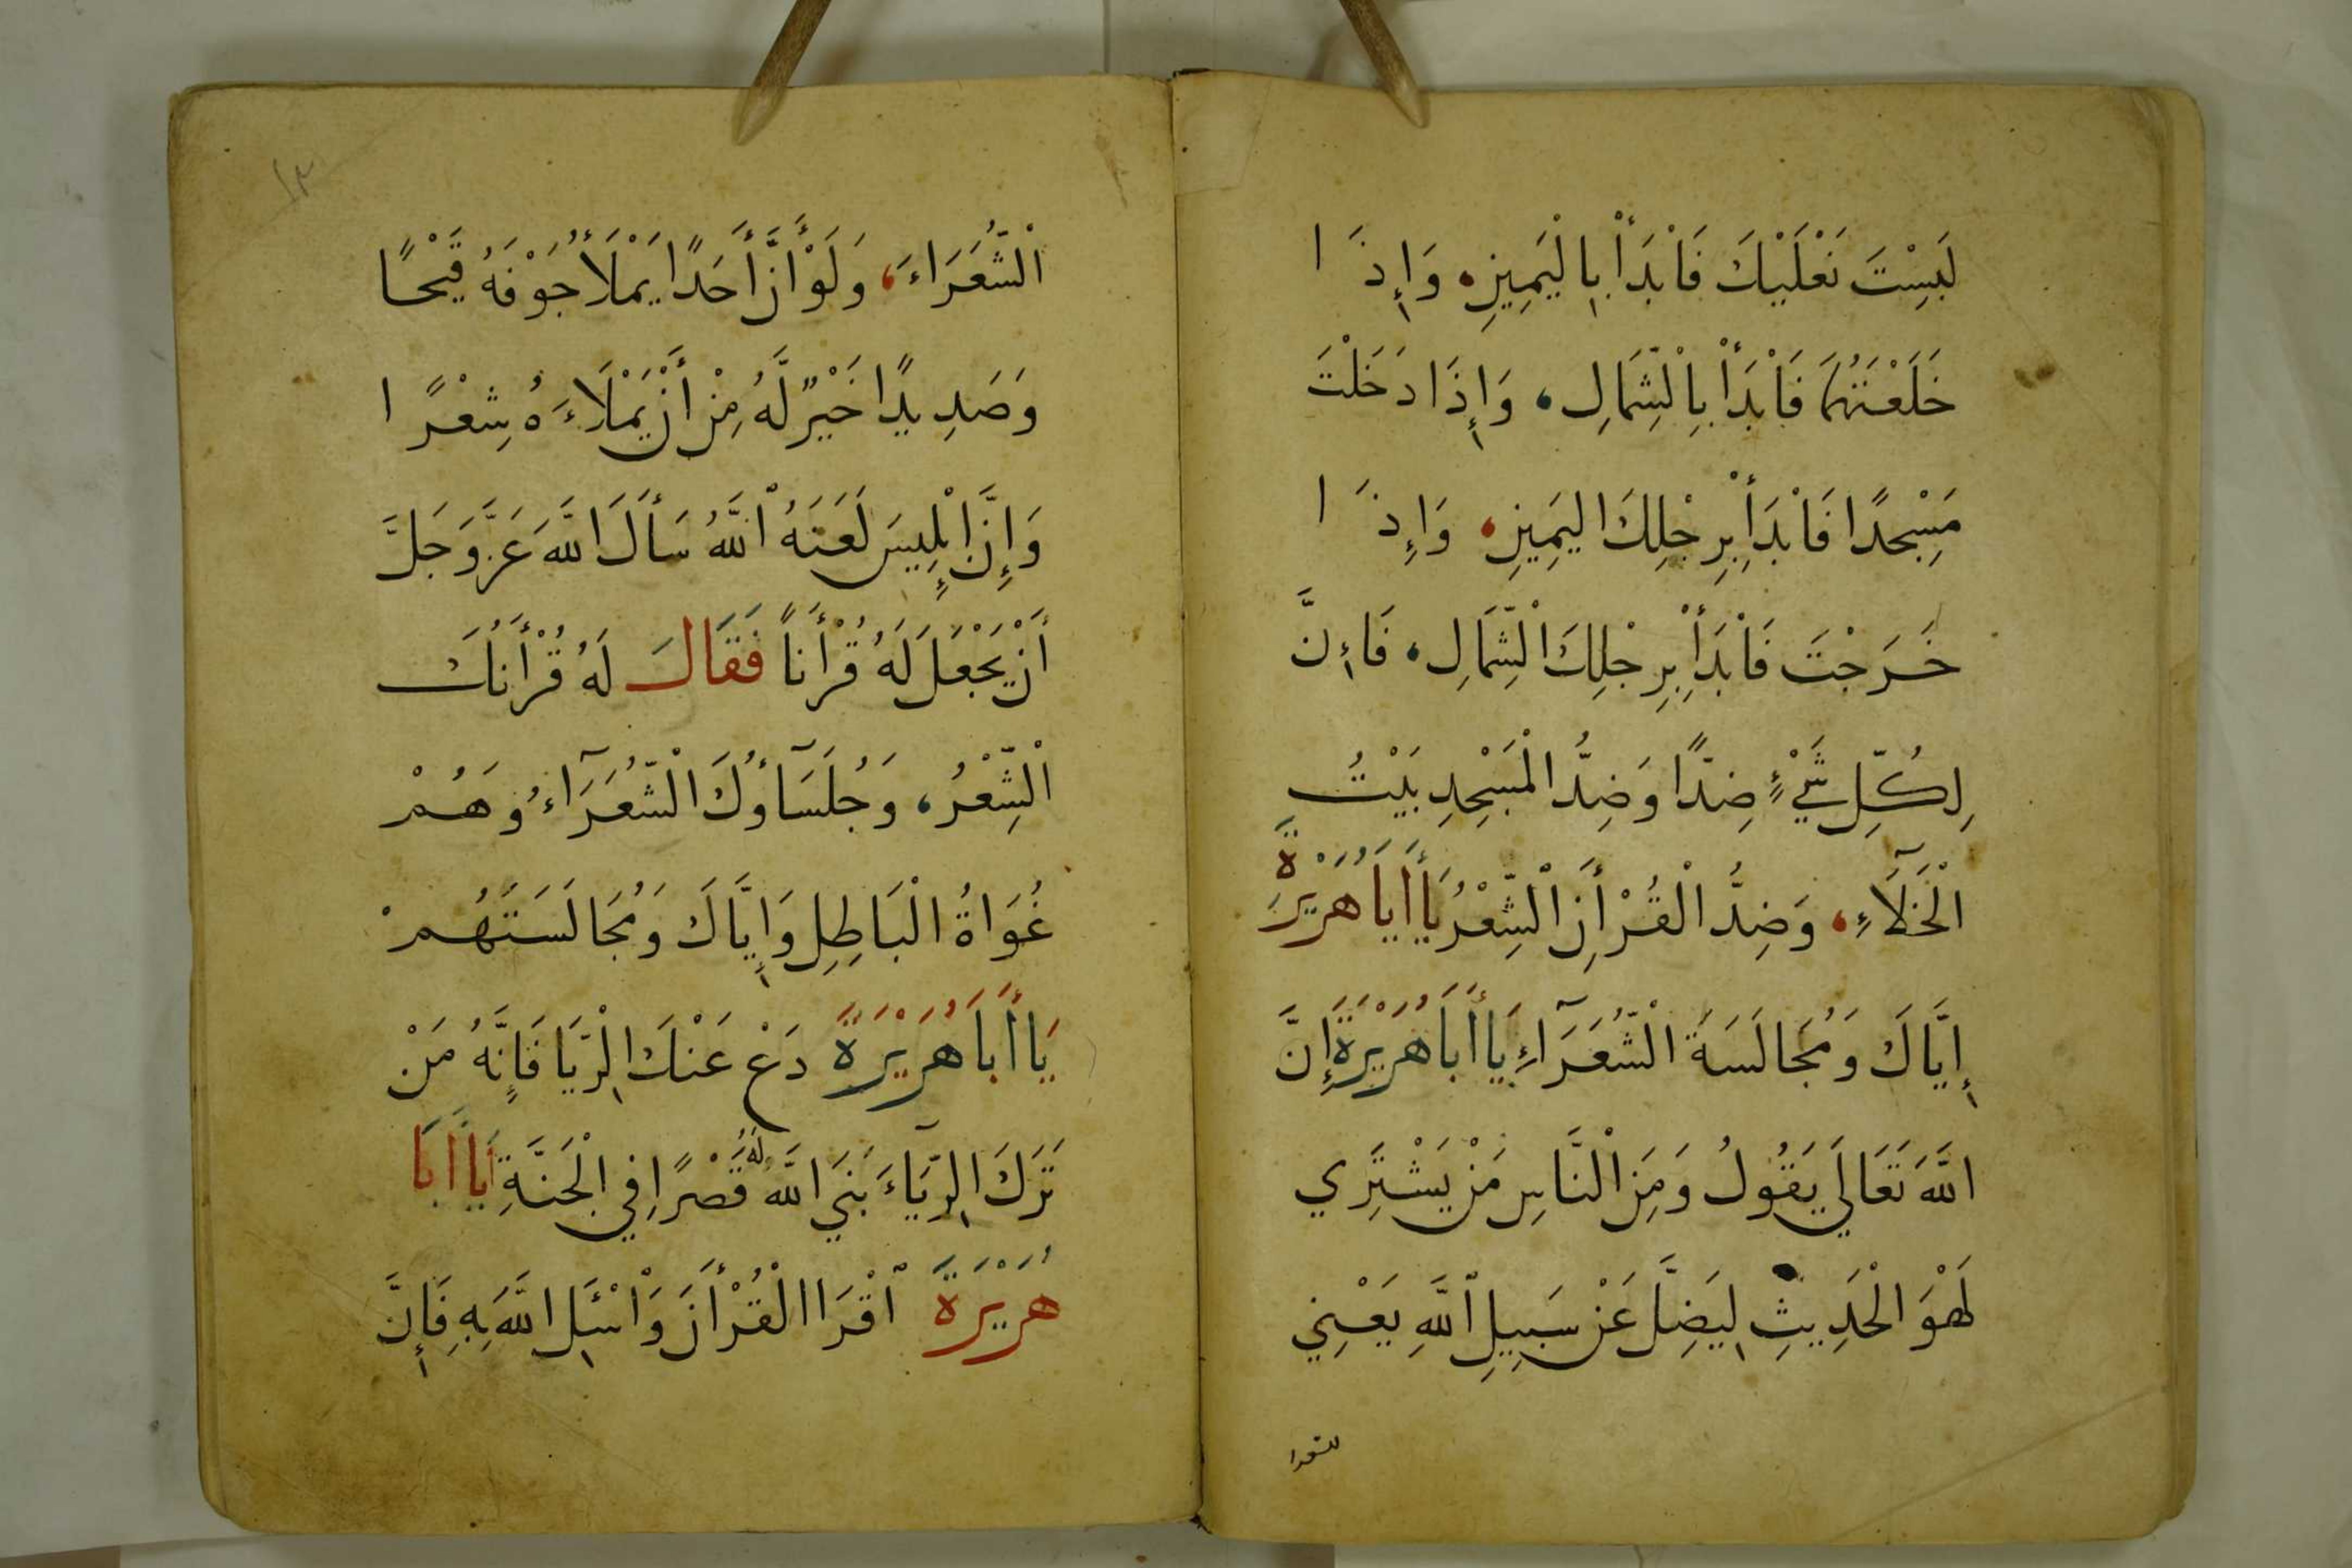 لَبِسْتَ نَعْلَيْكَ فَابْدَأْ بِالْيَمِينِ، وَإِذَا
خَلَعْتَهُمَا فَابْدَأْ بِالْشِّمَالِ، وَإِذَا دَخَلْتَ
مَسْجِدًا فَابْدَأْ بِرِجْلِكَ اليَمِينِ، وَإِذَا
خَرَجْتَ فَابْدَأْ بِرِجْلِكَ الْشِّمَالِ، فَاءِنَّ
لِكُلِّ شَيْءٍ ضِدًّا وَضِدُّ الْمَسْجِدِ بَيْتُ
الْخَلَآءِ، وَضِدُّ الْقُرْأَنِ الْشِّعْرُ يَا أَبَا هُرَيْرَةَ
إِيَّاكَ وَمُجَالَسَةَ الْشُّعَرَآءِ يَا أَبَا هُرَيْرَةَ إِنَّ
اللَّهَ تَعَالَى يَقُولُ وَمِنَ الْنَّاسِ مَنْ يَشْتَرِي
لَهْوَ الْحَدِيثِ لِيَضِلَّ عَنْ سَبِيلِ اللَّهِ يَعْنِي
الْشُّعَرَاءَ، وَلَوْ أَنَّ أَحَدًا يَمْلَأُ جَوْفَهُ قَيْحًا
وَصَدِيدًا خَيْرٌ لَّهُ مِنْ أَنْ يَمْلَاءَهُ شِعْرًا
وَإِنَّ إِبْلِيسَ لَعَنَهُ اللَّهُ سَأَلَ اللَّهَ عَزَّ وَجَلَّ
أَنْ يَجْعَلَ لَهُ قُرْأَناً فَقَالَ لَهُ قُرْأَنُكَ
الْشِّعْرُ، وَجُلَسَآؤُكَ الْشُّعَرَآءُ وَهُمْ
غُوَاةُ الْبَاطِلِ وَإِيَّاكَ وَمُجَالَسَتَهُمْ
يَا أَبَا هُرَيْرَةَ دَعْ عَنْكَ الِرِّيَا فَإِنَّهُ مَنْ
تَرَكَ الِرِّيَآءَ بَنَى اللَّهُ لَهُ قَصْرًا فِي الْجَنَّةِ يَا أَبَا
هُرَيْرَةَ اقْرَا الْقُرْأَنَ وَاسْئَلِ اللَّهَ بِهِ فَإِنَّ